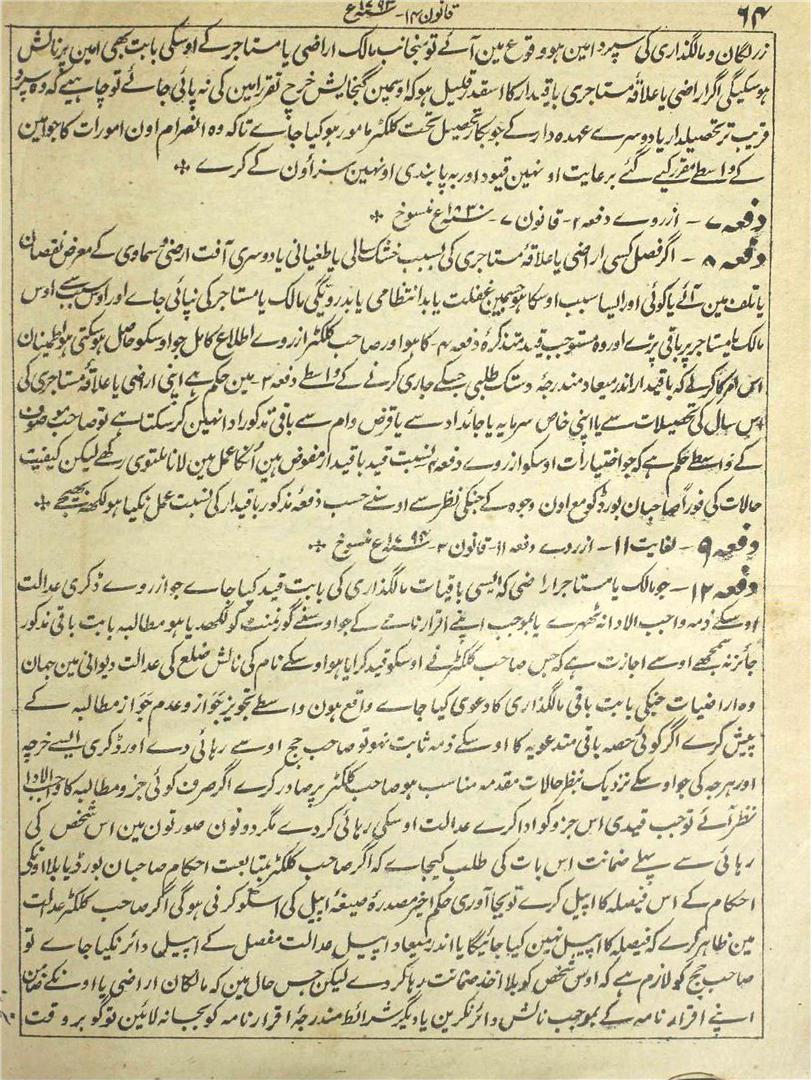 ۶۴
قانون ۱۴- ۱۷۹۳ع
زر لگان و مالگذاری کی سپرد امین ہو وقوع مین آئے تو بمنجانب مالک اراضی یا مستاجر کے اوسکی بابت بھی امین پر نالش
ہو سکیگی اگر اراضی یا علاقۂ مستاجری باقیدار کا اسقدر قلیل ہو کہ اوسمین گنجایش خرچ تقرر امین کی نہ پائی جائے تو چاہیے کہ وہ سپرد
قریب تر تحصیلدار یا دوسرے عہدہ دار کے جو بکار تحصیل تحت کلکٹر مامور ہو کیا جاے تاکہ وہ انصرام اون امورات کا جو امین
کے واسطے مقرر کیے گئے برعایت اونہین قیود اور بہ پابندی اونہین سزاؤن کے کرے ❊
دفعہ ۷ - از روے دفعہ ۲- قانون ۷- ۱۸۳۰ع منسوخ ❊
دفعہ ۸ - اگر فصل کسی اراضی یا علاقۂ مستاجری کی بسبب خشک سالی یا طغیانی یا دوسری آفت ارضی و سماوی کے معرض نقصان
یا تلف مین آئے یا کوئی اور ایسا سبب اوسکا ہو جسمین غفلت یا بد انتظامی یا بدرویگی مالک یا مستاجر کی نپائی جاے اور اوس سبب سے اوس
مالک یا مستاجر پر باقی پڑے اور وہ مستوجب قید متذکرۂ دفعہ ۴- کا ہو اور صاحب کلکٹر از روے اطلاع کامل جو اوسکو حاصل ہو سکتی ہو اطمینان
اس امر کا کرلے کہ باقیدار اندر میعاد مندرجۂ دستک طلبی جسکے جاری کرنے کے واسطے دفعہ ۳- مین حکم ہے اپنی اراضی یا علاقۂ مستاجری کی
اوس سال کی تحصیلات سے یا اپنی خاص سرمایہ یا جائداد سے یا قرض وام سے باقی مذکور ادا نہین کر سکتا ہے تو صاحب موصوف
کے واسطے حکم ہے کہ جو اختیارات اوسکو از روے دفعہ ۴ بنسبت قید باقیدار مفوض ہین اُنکا عمل مین لانا ملتوی رکھے لیکن کیفیت
حالات کی فوراً صاحبان بورڈ کو مع اون وجوہ کے جنکی نظر سے اوسنے حسب دفعۂ مذکور باقیدار کی نسبت عمل نکیا ہو لکھہ بھیجے ❊
دفعہ ۹ - لغایت ۱۱- از روے دفعہ ۱۱- قانون ۳- ۱۷۹۴ع منسوخ ❊
دفعہ ۱۲ - جو مالک یا مستاجر اراضی کہ ایسی باقیات مالگذاری کی بابت قید کیا جاے جو از روے ڈکری عدالت
اوسکے ذمہ واجب الادا نہ ٹھہرے یا بموجب اپنے اقرارنامے کے جو اوسنے گورنمنٹ کو لکھدیا ہو مطالبہ بابت باقی مذکور
جائز نہ سمجھے اوسے اجازت ہے کہ جس صاحب کلکٹر نے اوسکو قید کرایا ہو اوسکے نام کی نالش ضلع کی عدالت دیوانی مین جہان
وہ اراضیات جنکی بابت باقی مالگذاری کا دعوی کیا جاے واقع ہون واسطے تجویز جواز و عدم جواز مطالبہ کے
پیش کرے اگر کوئی حصہ باقی مندعویہ کا اوسکے ذمہ ثابت نہو تو صاحب جج اوسے رہائی دے اور ڈکری ایسے خرچہ
اور ہرجہ کی جو اوسکے نزدیک بنظر حالات مقدمہ مناسب ہو صاحب کلکٹر پر صادر کرے اگر صرف کوئی جزو مطالبہ کا واجب الادا
نظر آئے تو جب قیدی اس جزو کو ادا کرے عدالت اوسکی رہائی کر دے مگر دونون صورتون مین اس شخص کی
رہائی سے پہلے ضمانت اس بات کی طلب کیجاے کہ اگر صاحب کلکٹر بتابعت احکام صاحبان بورڈ یا بلا اونکی
احکام کے اس فیصلہ کا اپیل کرے تو بجا آوری حکم اخیر مصدرۂ صیغۂ اپیل کی اسکو کرنی ہوگی اگر صاحب کلکٹر عدالت
مین ظاہر کرے کہ فیصلہ کا اپیل نہین کیا جائیگا یا اندر میعاد اپیل عدالت مفصل کے اپیل دائر نکیا جاے تو
صاحب جج کو لازم ہے کہ اوس شخص کو بلا اخذ ضمانت رہا کر دے لیکن جس حال مین کہ مالکان اراضی یا اونکے ضامن
اپنے اقرار نامہ کے بموجب نالش دائر نکرین یا دیگر شرائط مندرجۂ اقرار نامہ کو بجا نہ لائین تو گو بر وقت